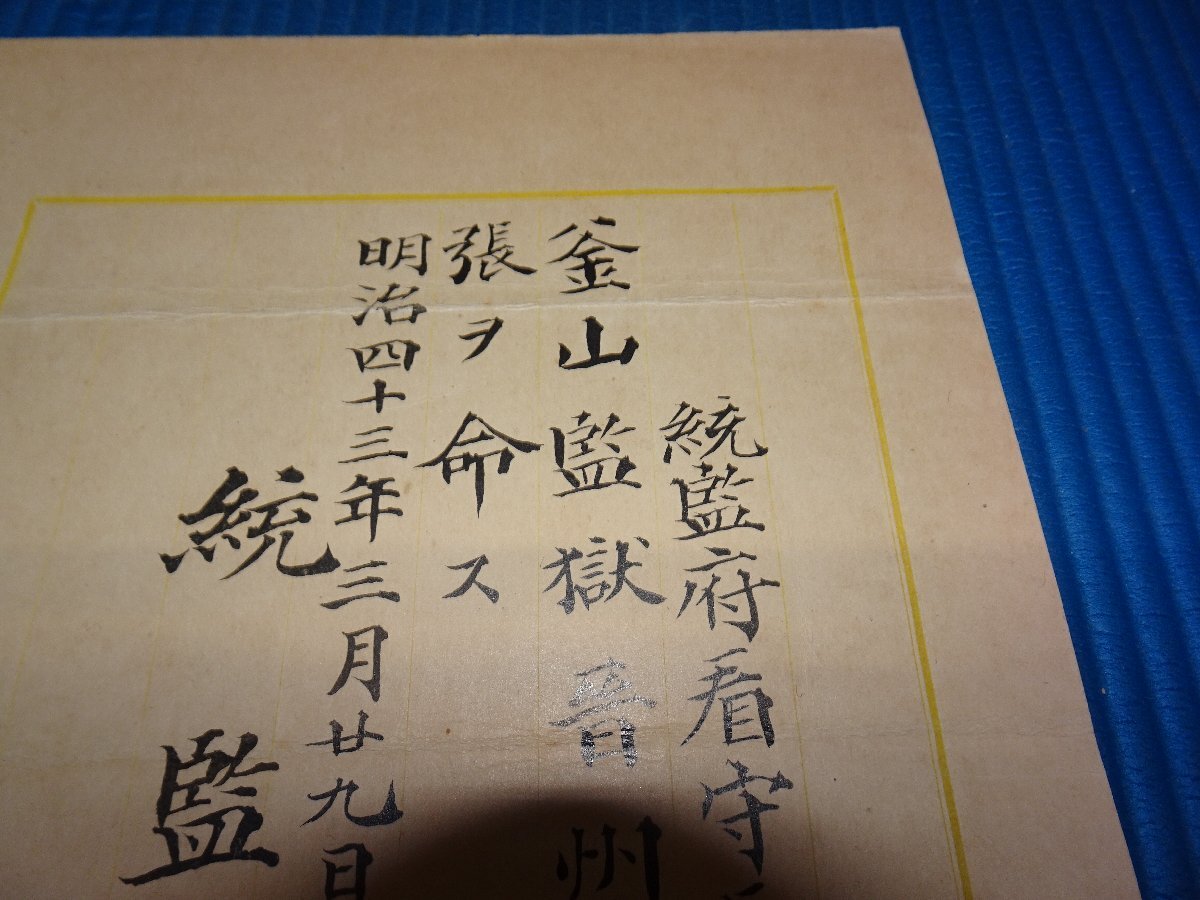 統監府看守
釜山監獄晋州
張ヲ命ス
明治四十三年三月廿九日
統監